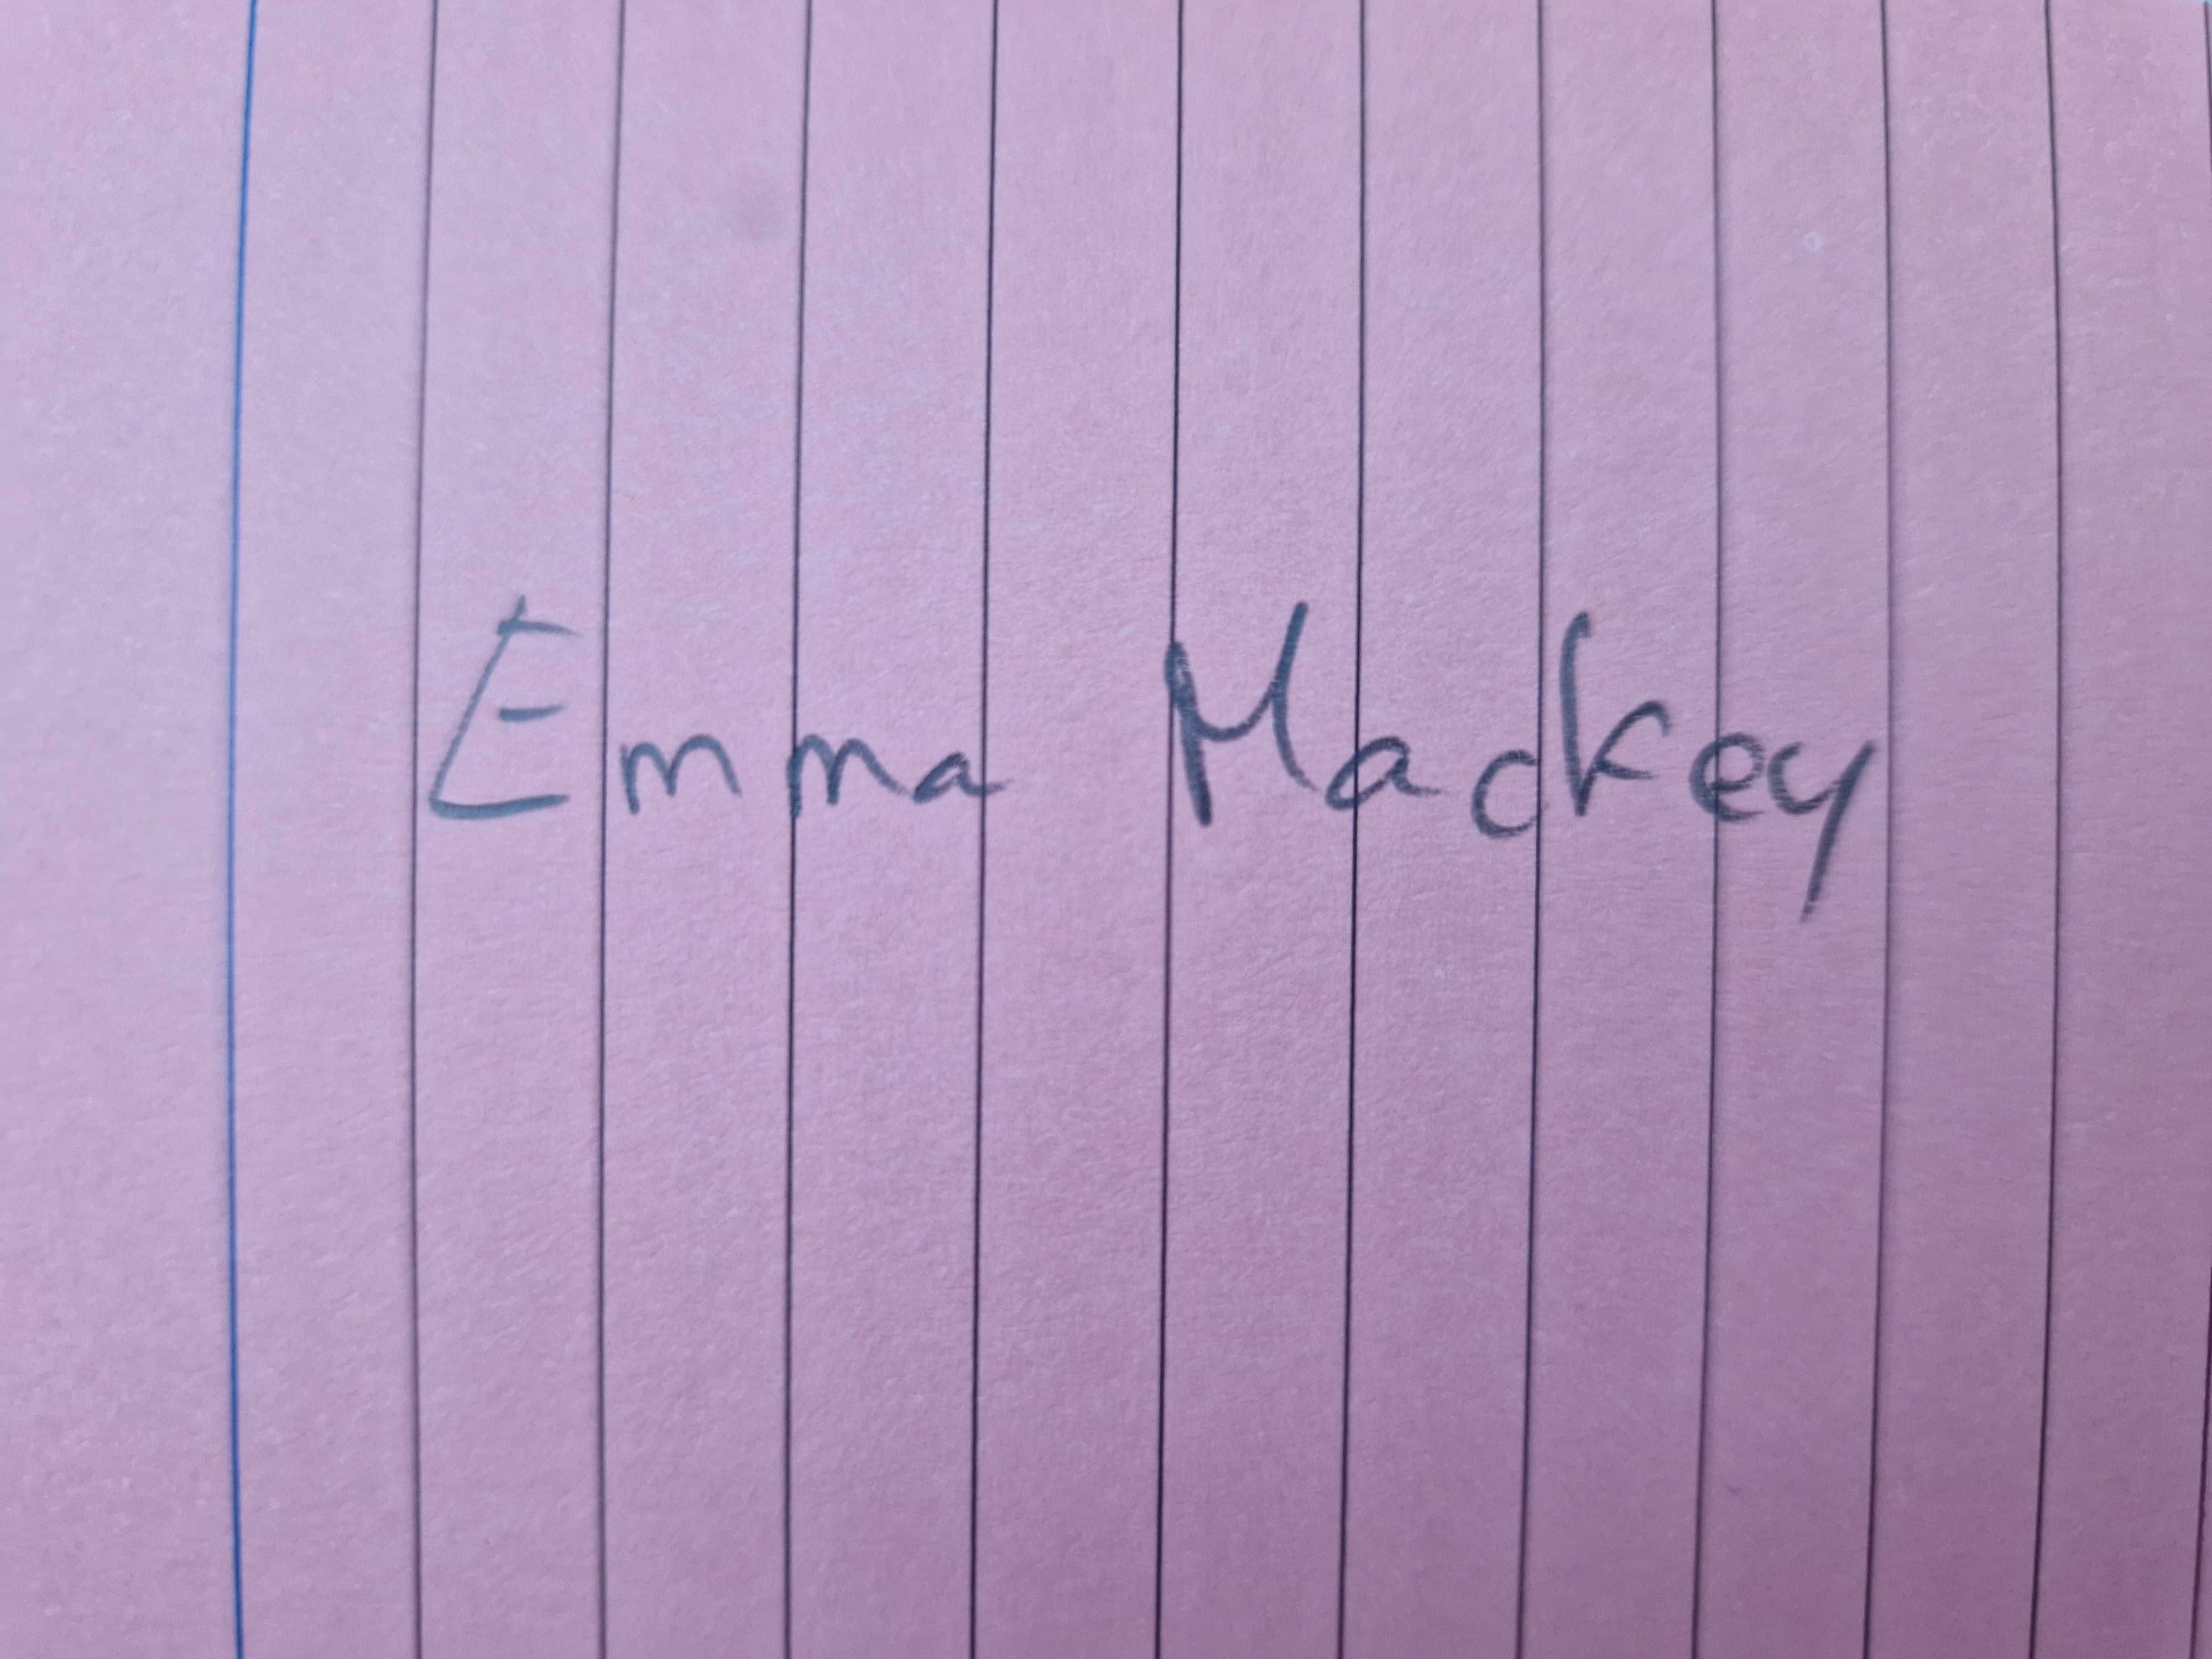 Emma Mackey